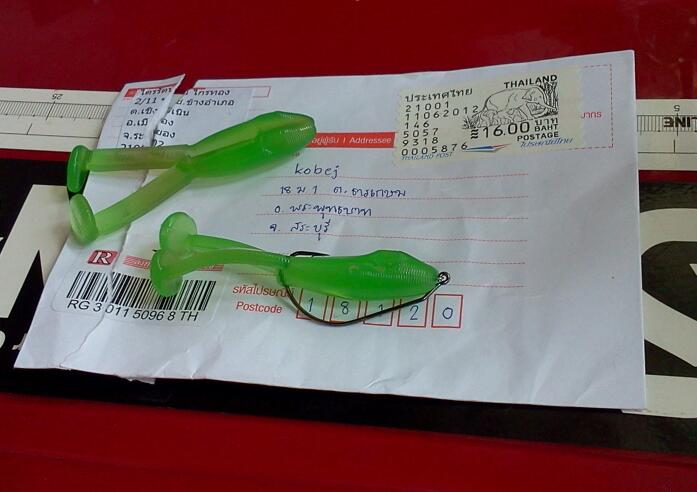 ไกรทอง
2/11
ข้างอำเภอ
อ.เมือง
จ.ระยอง
ประเทศไทย
THAILAND
21001
11062012
146
5057
9318
0005876
16.00 บาท
BAHT
POSTAGE
THAILAND POST
ไปรษณีย์ไทย
อยู่ผู้รับ I Addressee
kobej
18 ม 1 ต. ธารเกษม
อ. พระพุทธบาท
จ. สระบุรี
R
RG 3 011 5096 8 TH
รหัสไปรษณีย์
Postcode
1 8 1 2 0
25
5
LINE